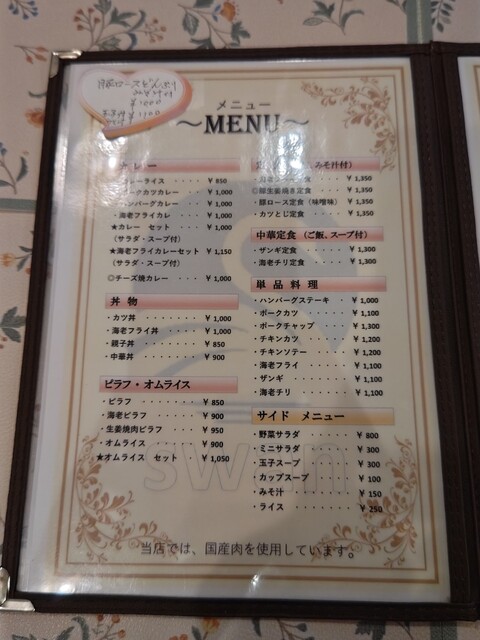 ¥1000
¥1100
メニュー
～MENU～
カレー
カレーライス ・・・・ ¥ 850
ポークカツカレー ・ ¥ 1,000
ハンバーグカレー ¥ 1,000
・海老フライカレー ・ ¥ 1,000
★カレー セット ・ ¥ 1,000
(サラダ・スープ付)
★海老フライカレーセット ¥ 1,150
(サラダ・スープ付)
◎チーズ焼カレー ・・ ¥ 1,000
丼 物
・カツ丼 ・・・・・ ¥ 1,000
・海老フライ丼 ・・・ ¥ 1,000
・親子丼 ・・・・・ ¥ 850
・中華丼 ・・・・・ ¥ 900
ピラフ・オムライス
・ピラフ ・・・・・・ ¥ 850
・海老ピラフ ・・・・ ¥ 900
・生姜焼肉ピラフ ・・ ¥ 950
・オムライス ・・・・ ¥ 900
★オムライス セット ・ ¥ 1,050
みそ汁付)
定食 ・・・ ¥ 1,350
◎豚生姜焼き定食 ・・・ ¥ 1,350
・豚ロース定食 (味噌味) ¥ 1,350
・カツとじ定食 ・・・ ¥ 1,350
中華定食 (ご飯、スープ付)
・ザンギ定食 ・・・・ ¥ 1,300
・海老チリ定食 ・・・ ¥ 1,300
単 品 料 理
・ハンバーグステーキ ・ ¥ 1,000
・ポークカツ ・・・・ ¥ 1,100
・ポークチャップ ・・ ¥ 1,300
・チキンカツ ・・・・ ¥ 1,200
・チキンソテー ・・・ ¥ 1,200
・海老フライ ・・・・ ¥ 1,100
・ザンギ ・・・・・・ ¥ 1,100
・海老チリ ・・・・・ ¥ 1,100
サイド メニュー
・野菜サラダ ・・・・ ¥ 800
・ミニサラダ ・・・・ ¥ 300
・玉子スープ ・・・・ ¥ 300
・カップスープ ・・・ ¥ 100
・みそ汁 ・・・・・・ ¥ 150
・ライス ・・・・・・ ¥ 250
当店では、国産肉を使用しています。